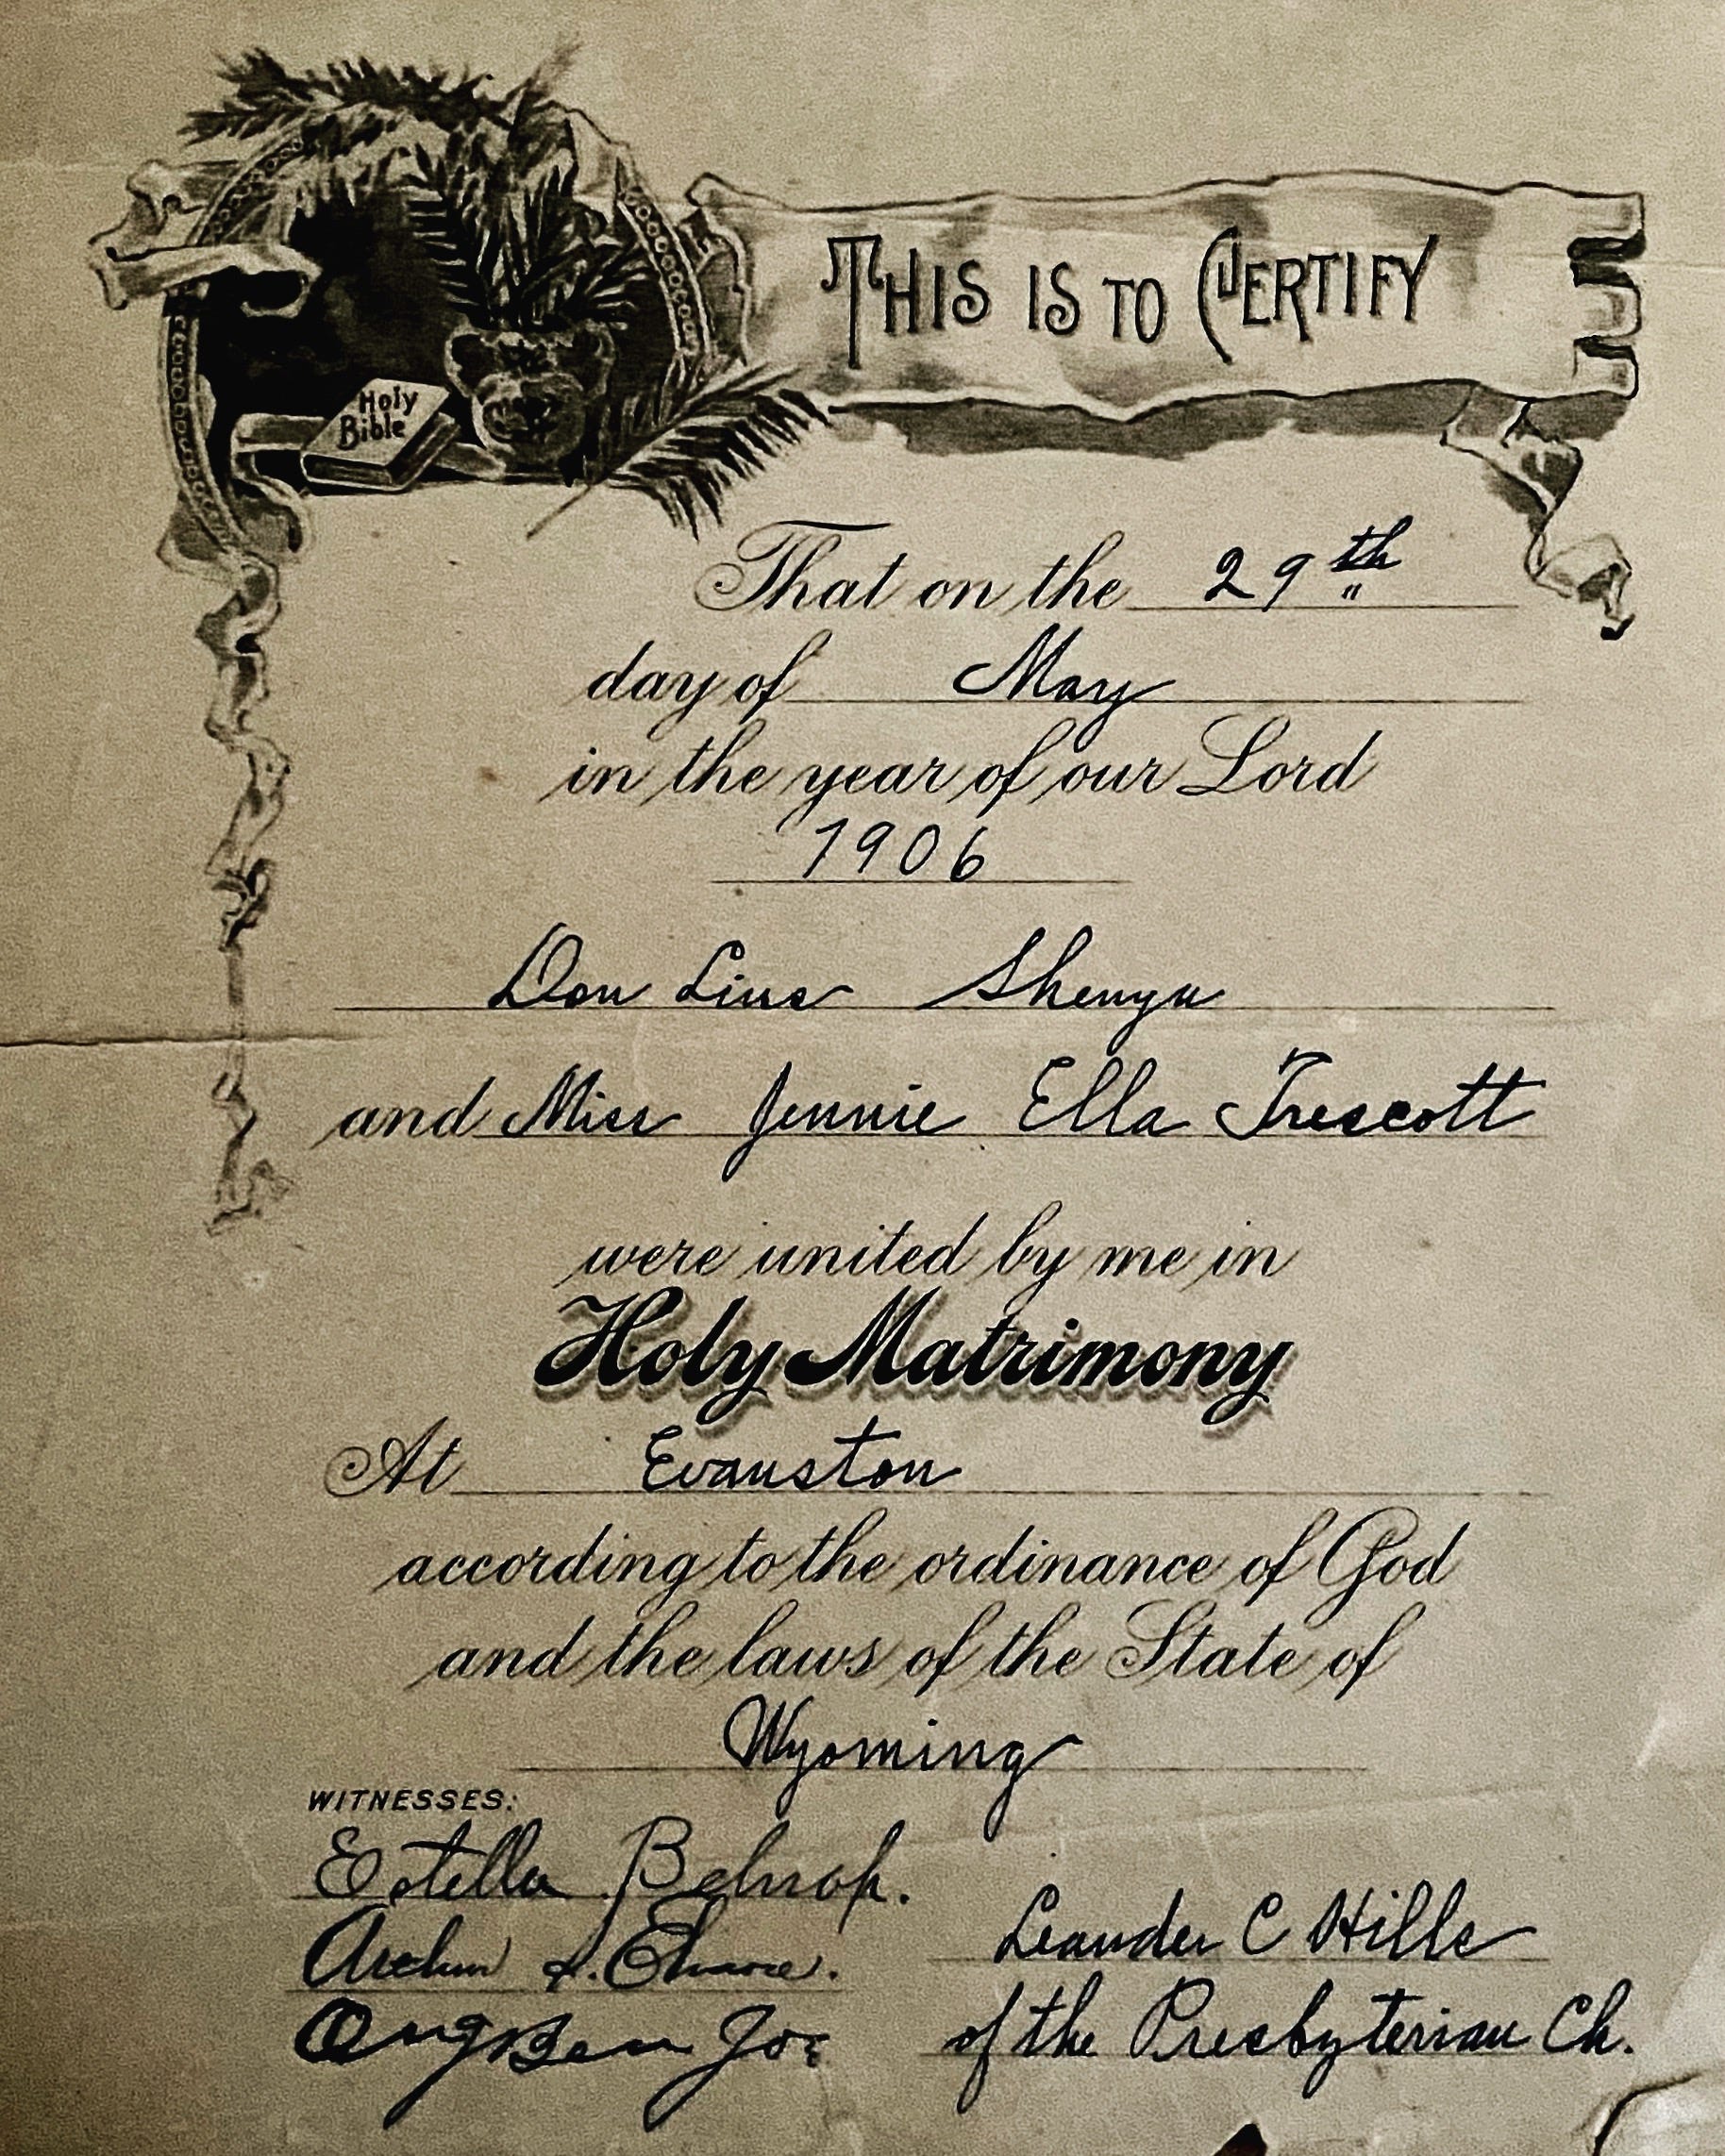 THIS IS TO CERTIFY
Holy
Bible
That on the 29th
day of May
in the year of our Lord
1906
Don Shenyu
and Miss Jennie Ella Trescott
were united by me in
Holy Matrimony
At Evanston
according to the ordinance of God
and the laws of the State of
Wyoming
WITNESSES:
Estella
Leander C Hills
Ong Ben Joe
of the Presbyterian Ch.